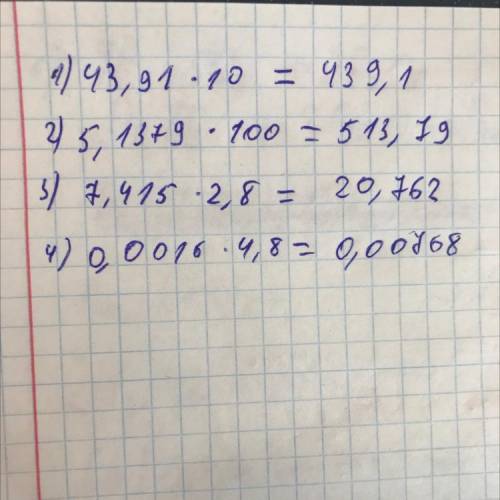 1) 43,91 · 10 = 439,1
2) 5,1379 · 100 = 513,79
3) 7,415 · 2,8 = 20,762
4) 0,0016 · 4,8 = 0,00768